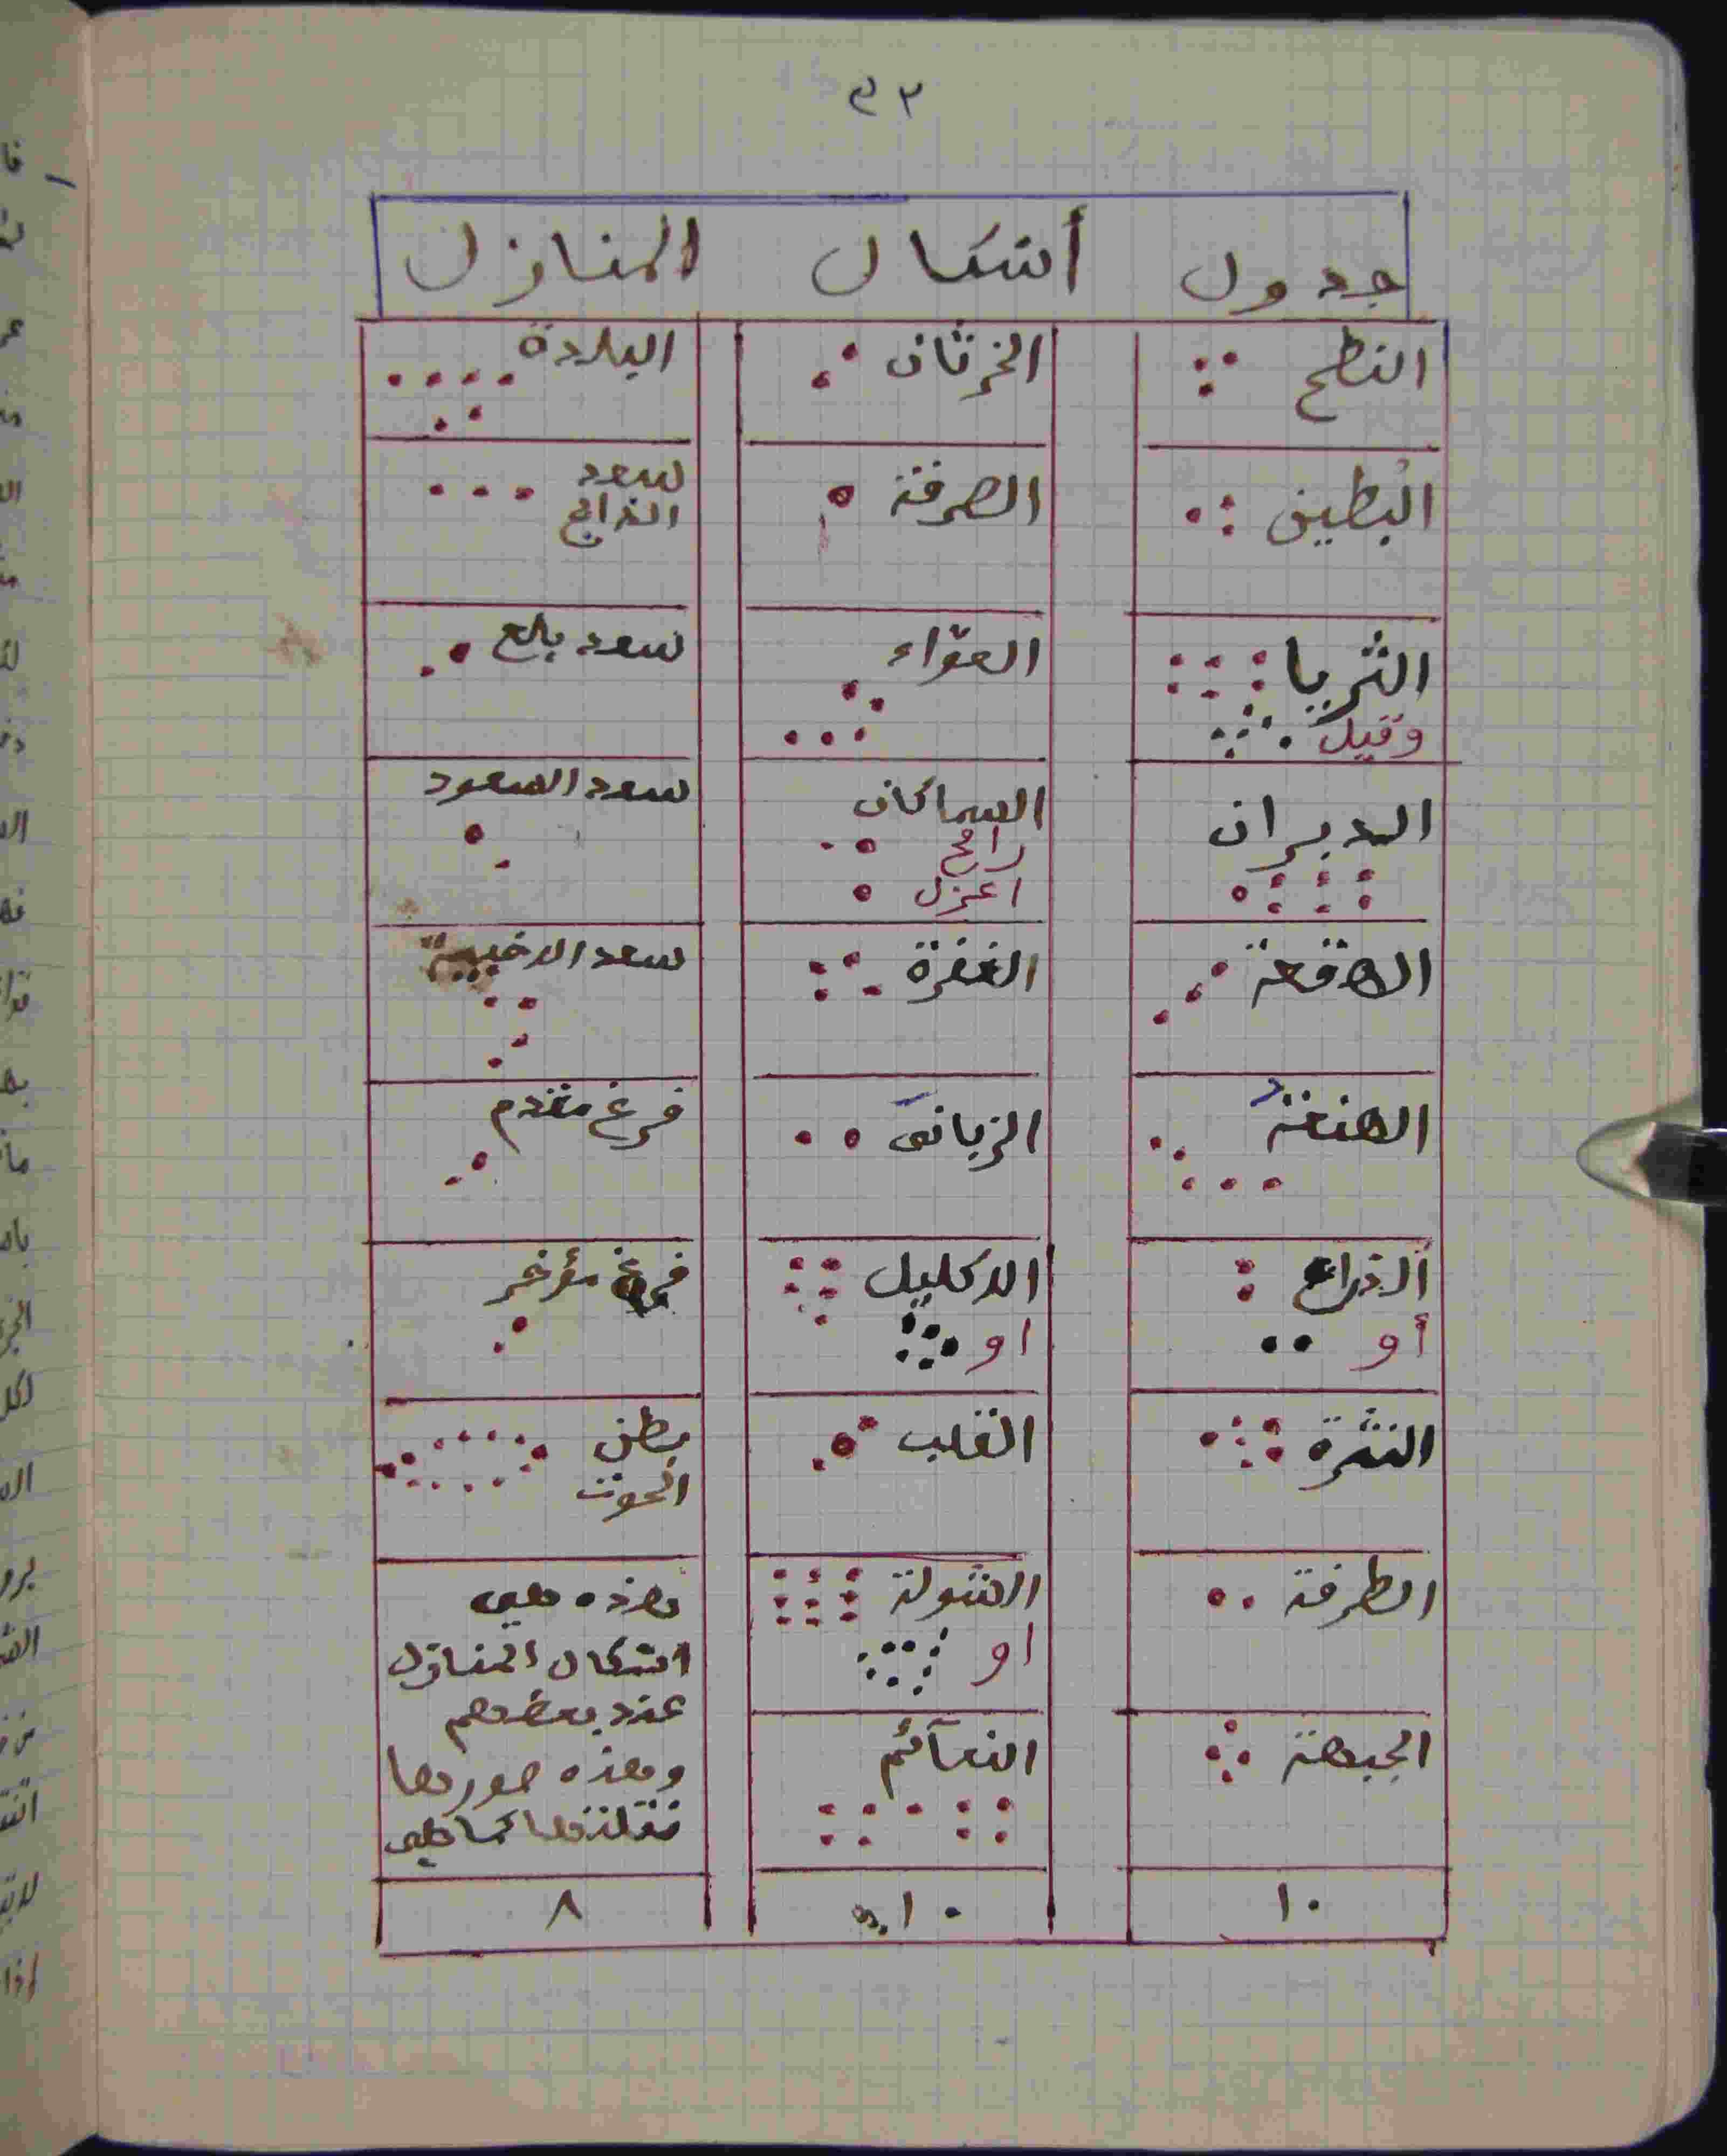 ٩٣
جدول أشكال المنازل
النطح
البُطين
الثريا
وقيل
الدبران
الهقعة
الهنعة
الذراع
أو
النثرة
الطرفة
الجبهة
١٠
الخرثان
الصرفة
العوّاء
السماكان
رامح
اعزل
الغفرة
الزبانى
الاكليل
او
القلب
الشولة
او
النعآئم
١٠
البلادة
سعد
الذابح
سعد بلع
سعد السعود
سعد الاخبية
فرغ مقدم
فرغ مؤخر
بطن
الحوت
هذه هي
اشكال المنازل
عند بعضهم
وهذه صورها
نقلناها كما هي
٨